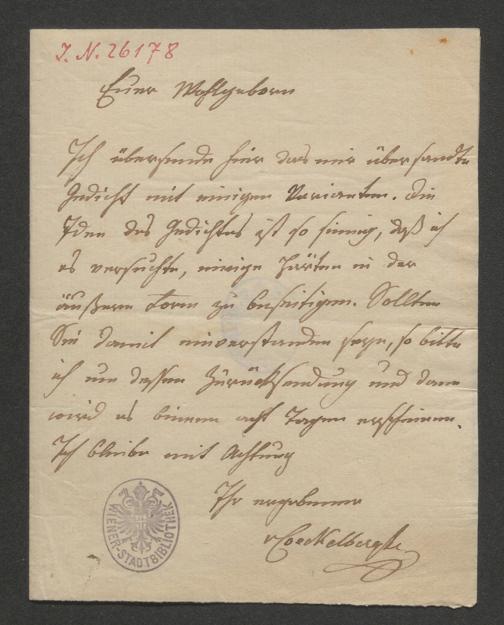 I. N. 26178
Euer Wohlgeborn
Ich übersende hier das mir übersandte
Gedicht mit einigen Varianten. Die
Idee des Gedichtes ist so sinnig, daß ich
es versuchte, einige Härten in der
äußeren Form zu beseitigen. Sollten
Sie damit einverstanden seyn, so bitte
ich um dessen Zurücksendung und dann
wird es binnen acht Tagen erscheinen.
Ich bleibe mit Achtung
Ihr ergebener
vCoeckelberghe
WIENER-STADTBIBLIOTHEK